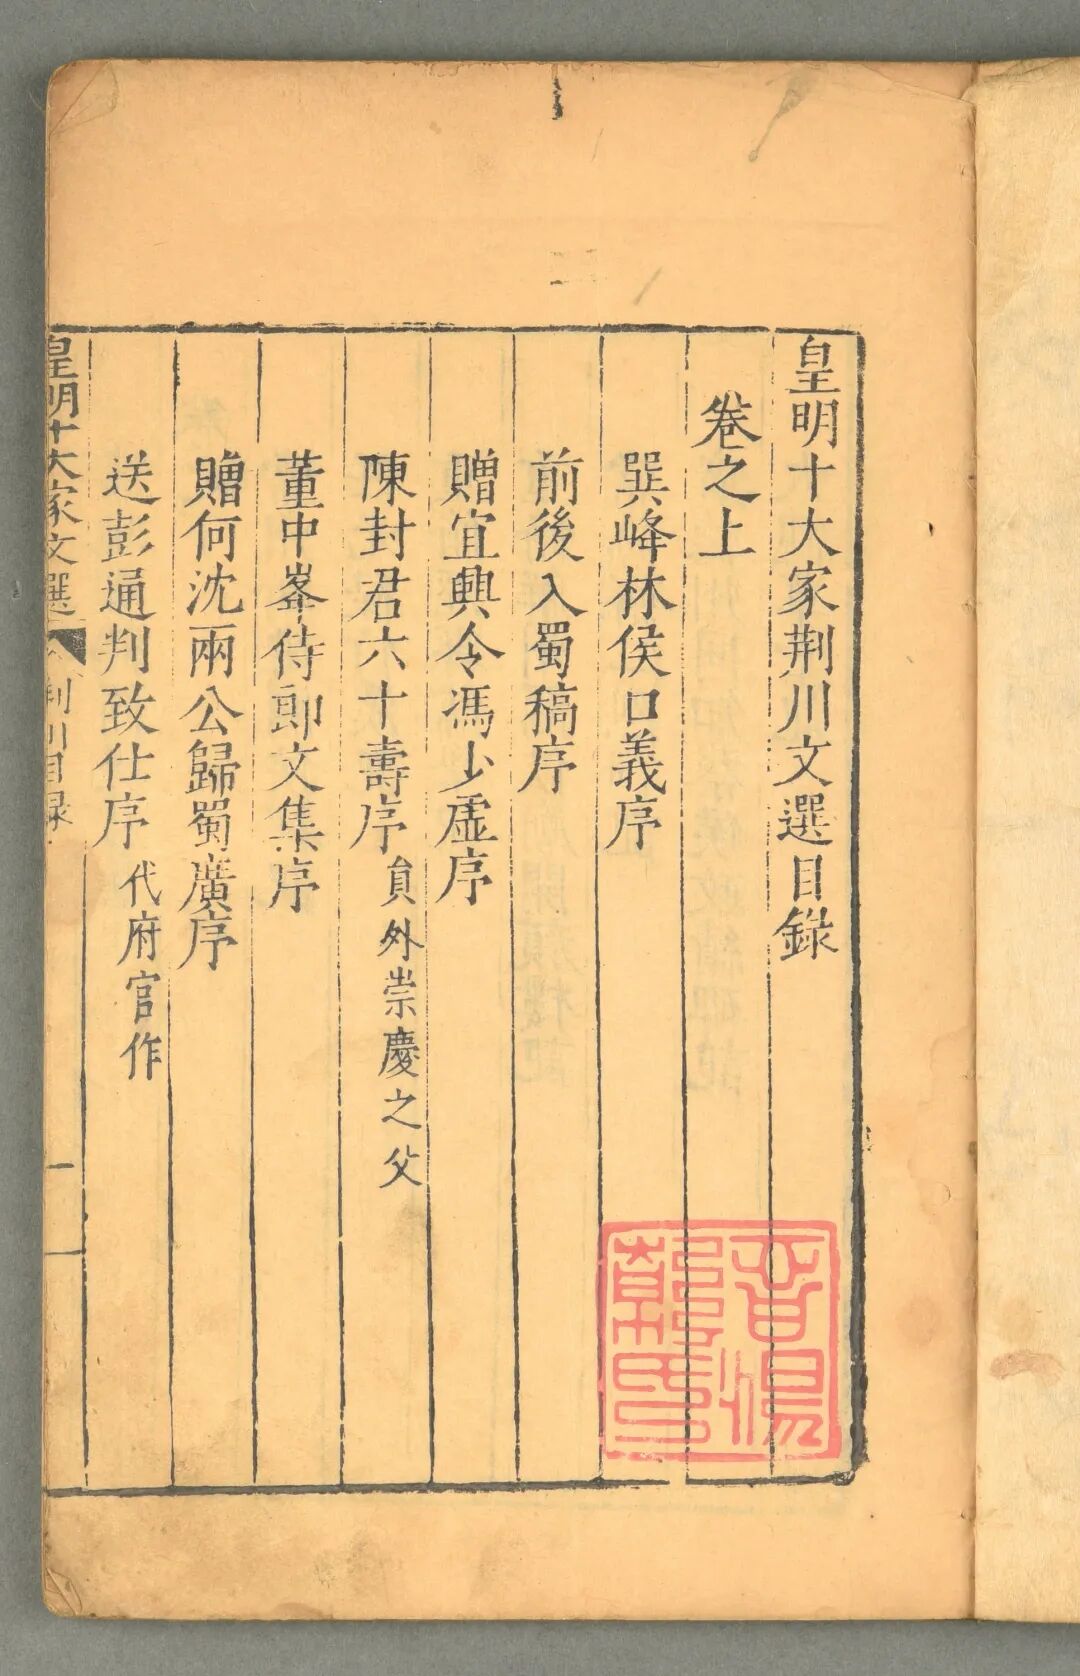 皇明十大家荆川文選目錄
卷之上
巽峰林侯口義序
前後入蜀稿序
贈宜興令馮少虛序
陳封君六十壽序 員外崇慶之父
董中峯侍郎文集序
贈何沈兩公歸蜀廣序
送彭通判致仕序 代府官作
皇明十大家文選 荆川目录 一